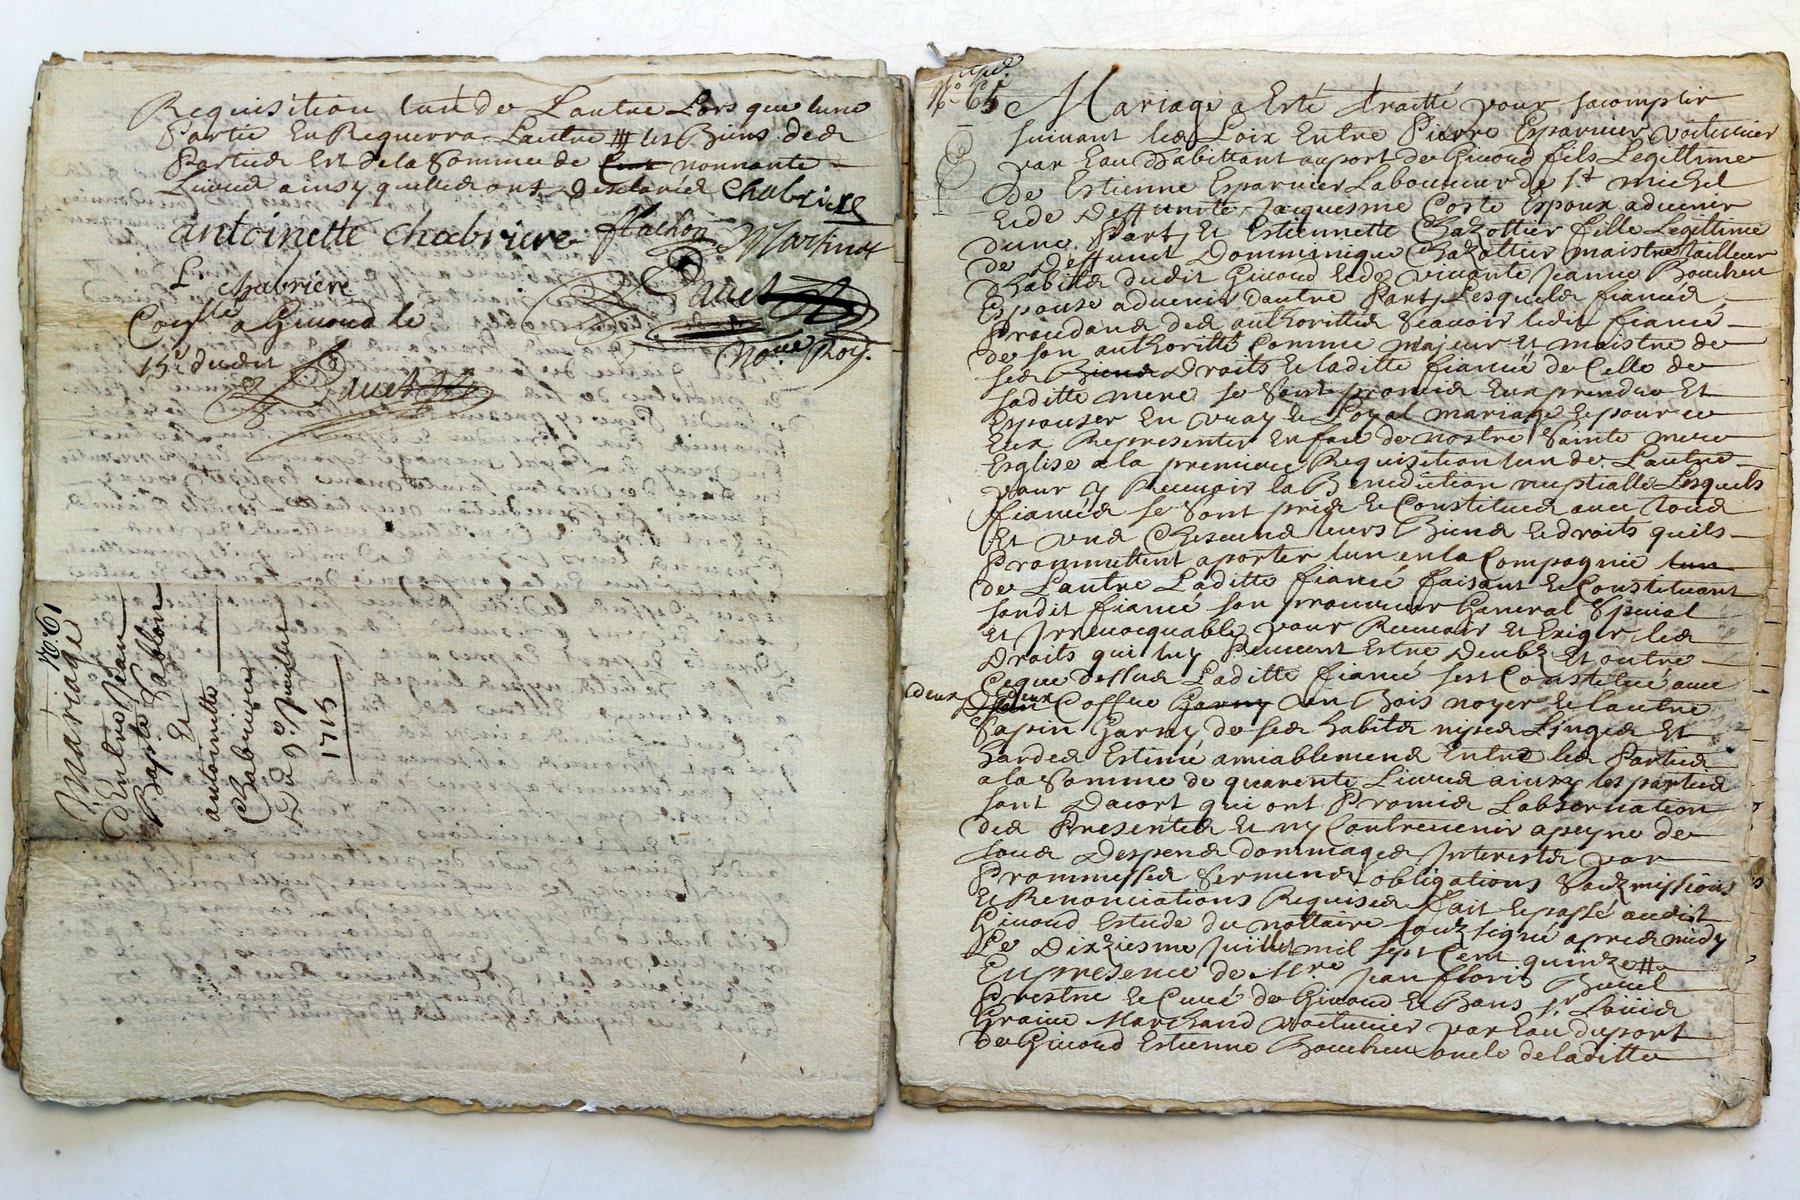 Requisition lun de Lautre Lors que lune
Partie En Requerra Lautre les Biens des
Parties Est de la Somme de Cent nonnante
Livres ainsy quelles ont desclarés Chabriere
antoinette chabriere flachon Martinot
L chabriere
Davet
No.re Roy.
Con.lle a Givord le
15e dudit
Davet
No. 61
Mariage
d'Entre Jean
Bap.te Sablon
Et
antoinette
Chabriere
Du 9e Juillet
1715
exped.
No. 65
Mariage a Esté traitté pour sacomplir
suivant les Loix Entre Pierre Esparnier voiturier
par Eau Habittant au port de Givord fils Legittime
de Estienne Esparnier Laboureur de S.t Michel
Et de deffunte Jacquesme Coste Espoux advenir
dune Part, Et Estiennette Chazottier fille Legitime
de deffunt Dominique Chazottier maistre tailleur
dhabits dudit Givord Et de vivante Jeanne Boucheu
Espouse advenir dautre Part, Lesquels fiancés
Procedans des authorittés scavoir ledit fiancé
de son authoritté Comme majeur Et maistre de
ses Biens Droits Et laditte fiancée de Celle de
saditte mere se sont promis Eux prendre Et
Espouser En vray Et Loyal mariage Et pour ce
Eux Representer En face de nostre Sainte mere
Esglise a la premiere Requisition lun de Lautre
pour y Recevoir la Benediction nuptialle Lesquels
fiancés se sont pris Et Constitués avec tous
Et uns Chescuns leurs Biens Et droits quils
Promettent aporter lun en la Compagnie lun
de Lautre Laditte fiancée faisant Et Constituant
sondit fiancé son procureur General Special
Et Irrevocquable pour Recevoir Et Exiger les
Droits qui luy Peuvent Estre Deubz Et outre
Ceque dessus Laditte fiancée sest Constitué avec
deux Coffre Garny un Bois noyer Et lautre
Sapin Garny de ses habits nipes Linges Et
hardes Estimé amiablement Entre les Parties
a la Somme de quarente Livres ainsy les parties
sont Dacort qui ont Promis Lobservation
des Presentes Et ny Contrevenir apeyne de
tous Despens dommages Interests par
Prommesses Serments obligations Soubzmissions
Et Renonciations Requises fait Et passé audit
Givord Estude du nottaire soubzsigné apres midy
Le Dixiesme Juillet mil sept Cent quinze
En presence de M.re Jean floris Buuel
Prestre Et Curé de Givord Et Bans s.r Loüis
Graine Marchand voiturier par Eau du port
de Givord Estienne Boucheu oncle de laditte